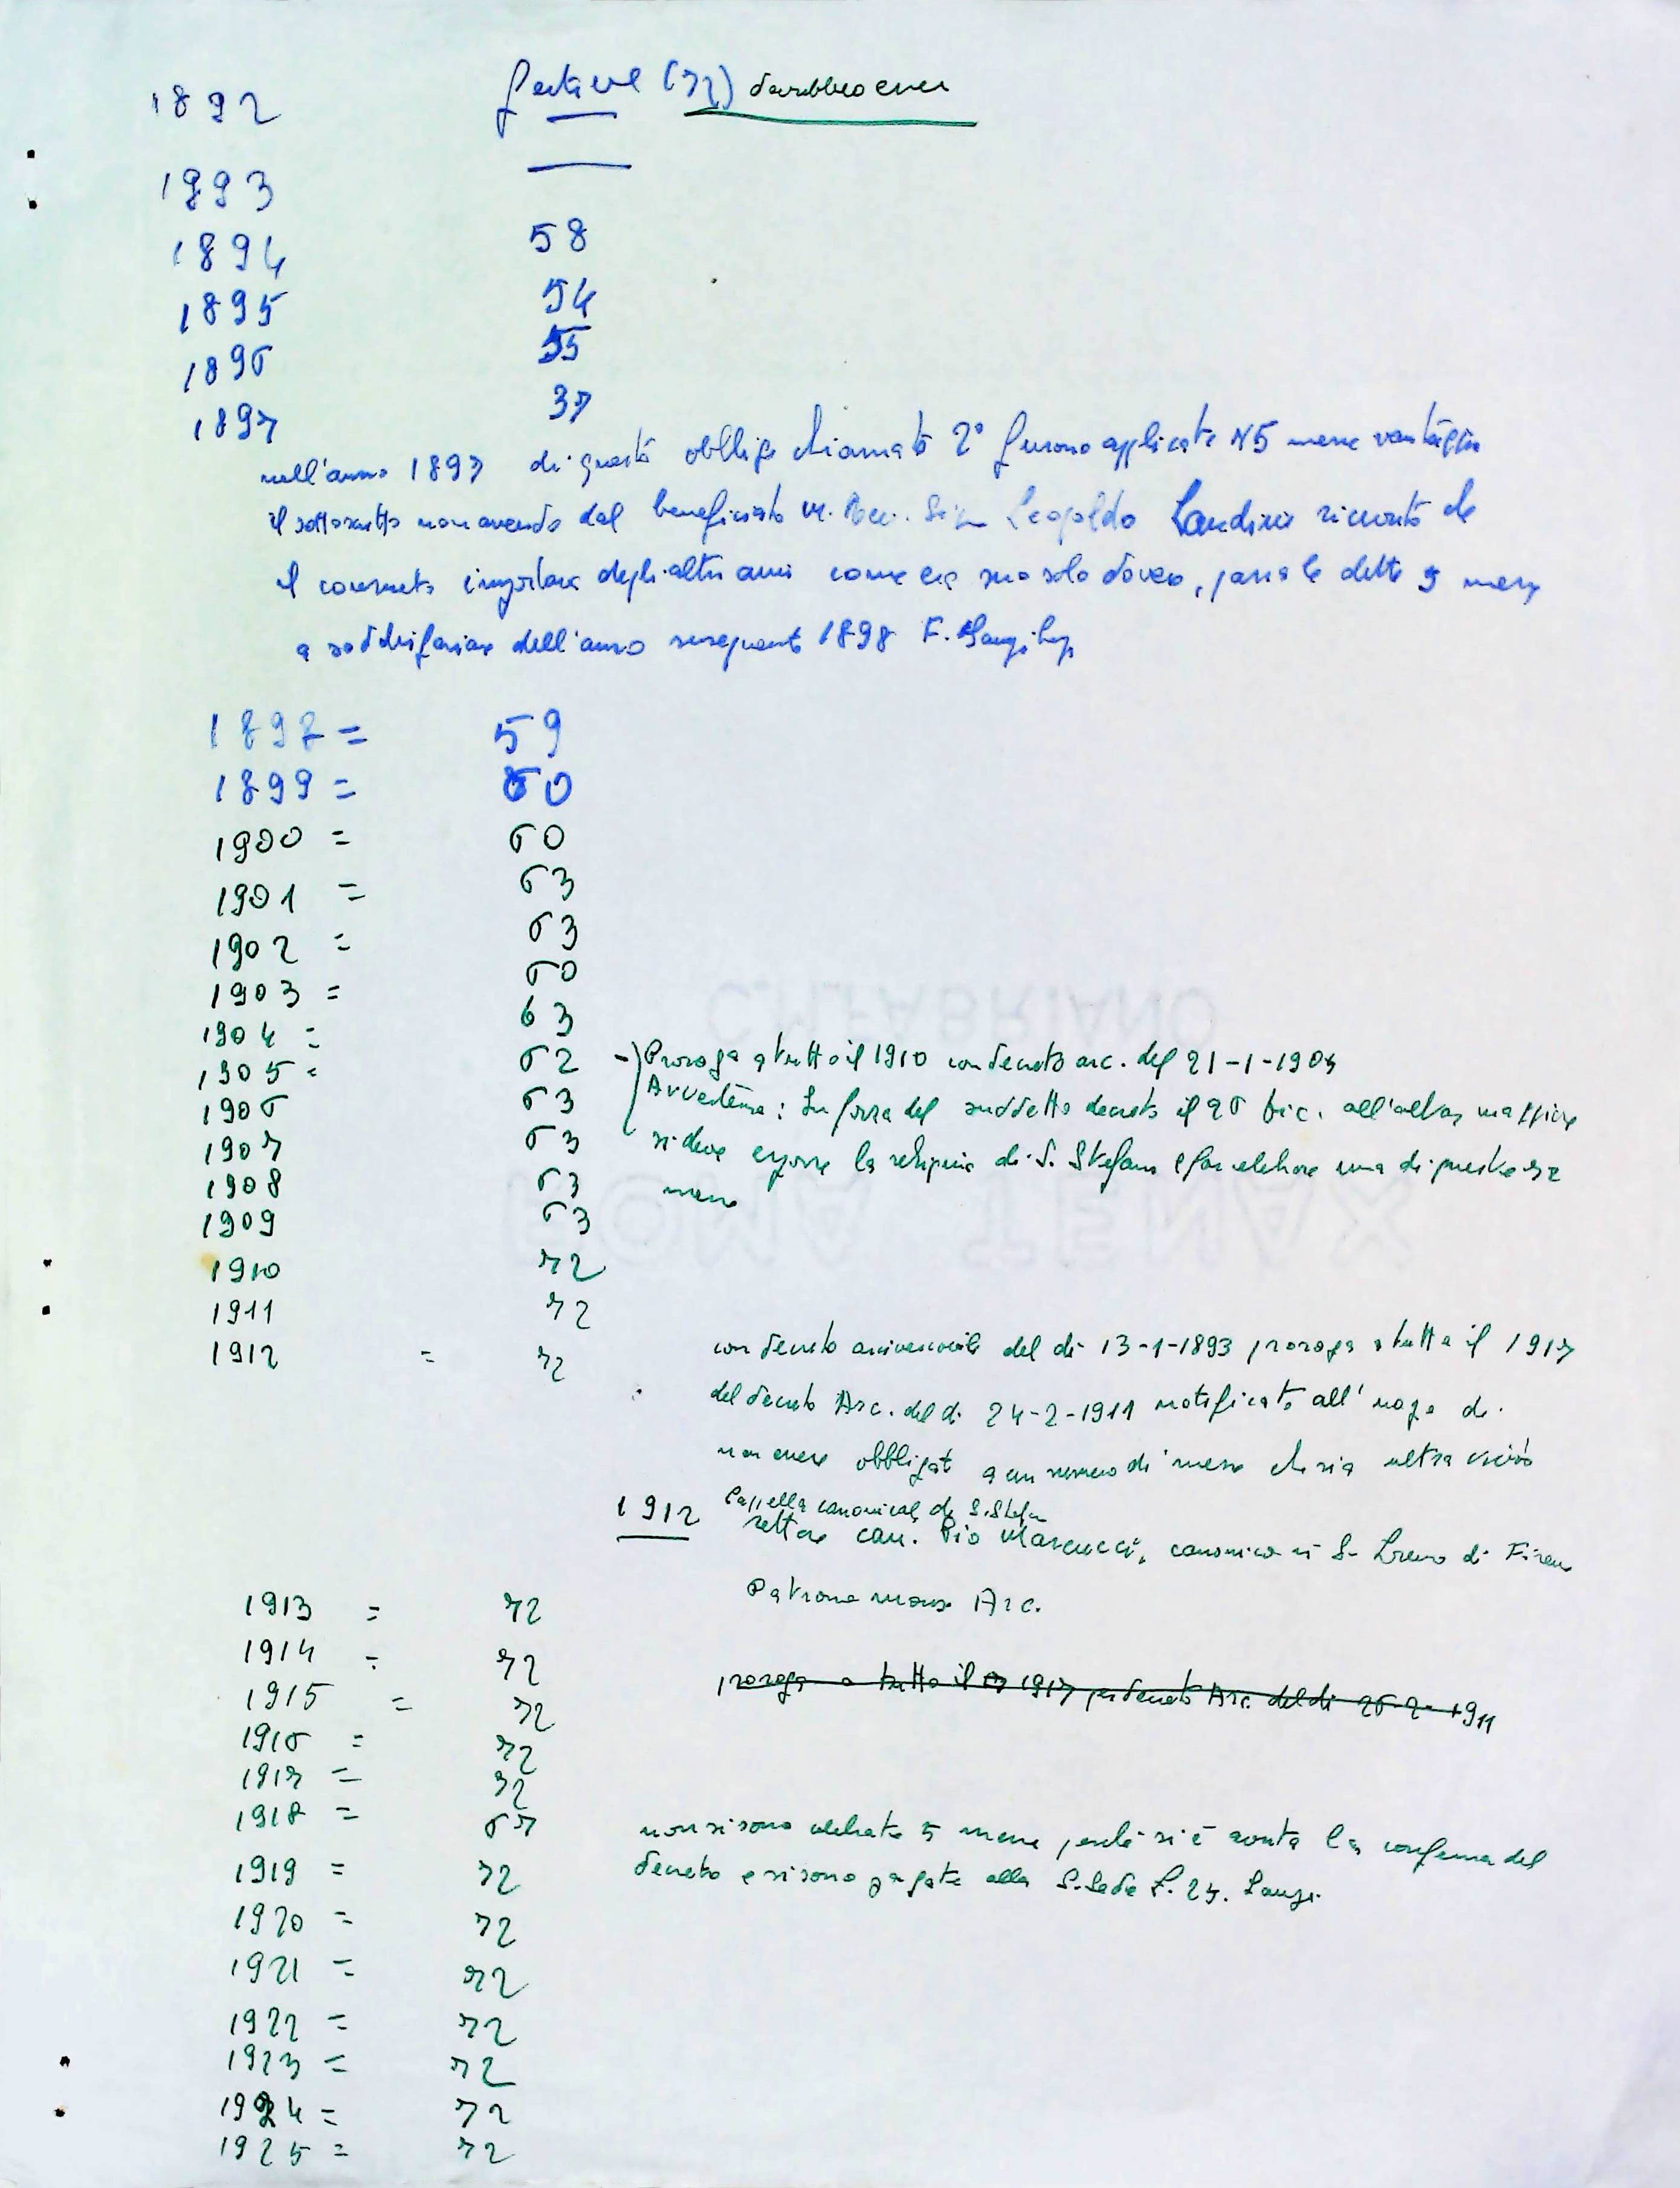 1892 festive (72) dovrebbero essere
1893
1894 58
1895 54
1896 55
1897 37
nell'anno 1897 di questo obbligo chiamato 2° furono applicate N 5 messe vantaggio
il sottoscritto non avendo dal beneficiato M. Rev. Sig. Leopoldo Landini ricevuto che
il consueto importare degli altri anni come era suo solo dovere, passa le dette 5 messe
a soddisfazione dell'anno susseguente 1898 F.
1898 = 59
1899 = 60
1900 = 60
1901 = 63
1902 = 63
1903 = 60
1904 = 63
1905 = 62 Proroga a tutto il 1910 con decreto arc. del 21-1-1907
1906 63 Avvertenza: In forza del suddetto decreto il 26 Dic. all'altar maggiore
1907 63 si deve esporre la reliquia di S. Stefano e far celebrare una di queste 72
1908 63 messe
1909 63
1910 72
1911 72
1912 = 72 con decreto arcivescovile del dì 13-1-1893 proroga a tutto il 1917
del decreto Arc. del dì 24-2-1911 notificato all' di
non essere obbligati a un numero di messe che sia
1912 Cappella canonicale di S. Stefano
rettore can. Pio Marcucci, canonico in S. Lorenzo di Firenze
Patrono Mons. Arc.
1913 = 72
1914 = 72
proroga a tutto il 1917 per decreto Arc. del dì 26-2-1911
1915 = 72
1916 = 72
1917 = 72
1918 = 67 non si sono celebrate 5 messe perché si è avuta la conferma del
decreto e si sono pagate alla S. Sede £. 25.
1919 = 72
1920 = 72
1921 = 72
1922 = 72
1923 = 72
1924 = 72
1925 = 72
C.M.FABRIANO
ROMA TENAX